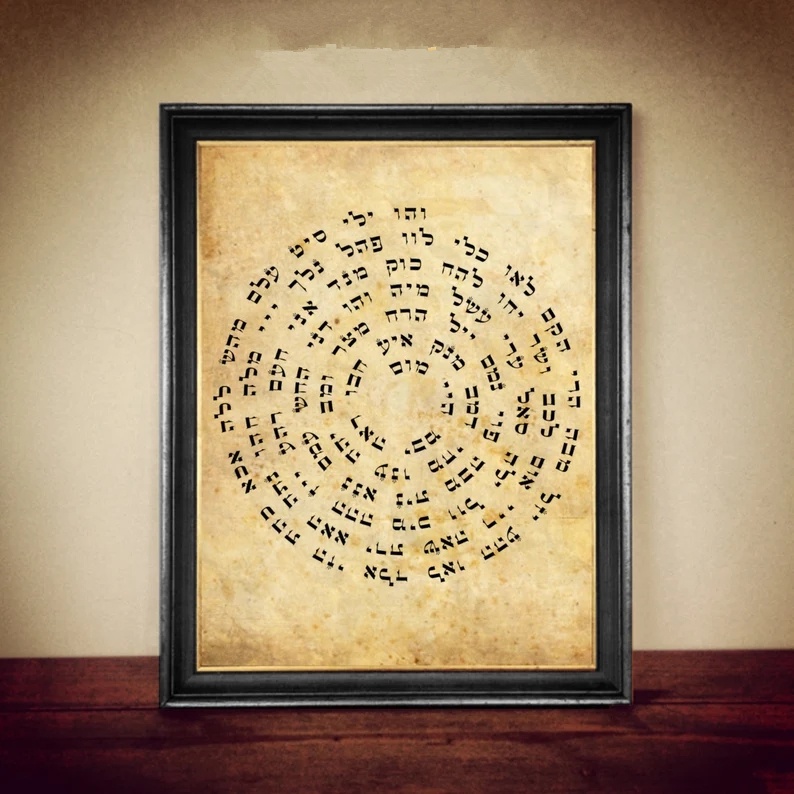 והו ילי סיט עלם מהש ללה אכא כהת הזי אלד לאו ההע יזל מבה הרי הקם לאו כלי
לוו פהל נלך ייי מלה חהו נתה האא ירת שאה ריי אום לכב ושר יחו להח
כוק מנד אני חעם רהע ייז ההה מיכ וול ילה סאל ערי עשל
מיה והו דני החש עמם ננא נית מבה פוי נמם ייל
הרח מצר ומב יהה ענו מחי דמב מנק
איע חבו ראה יבמ היי
מום